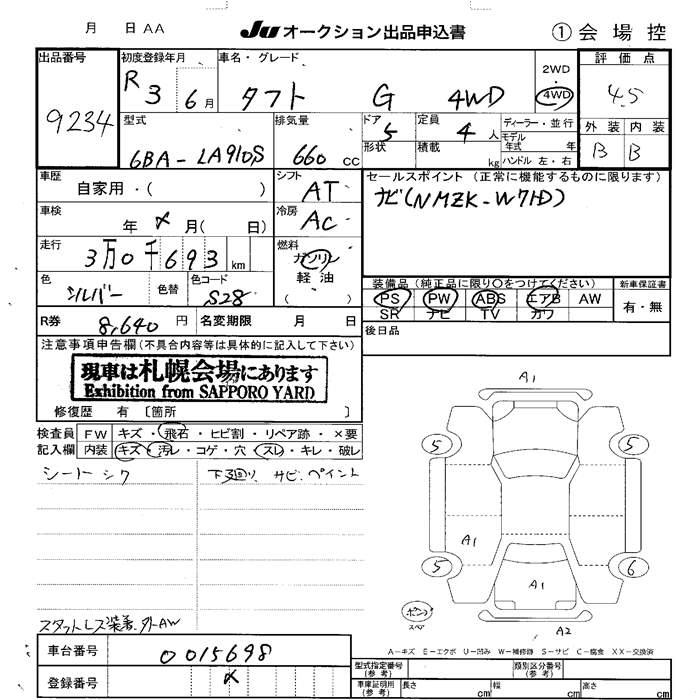 月 日 AA JU オークション出品申込書 ① 会場控
出品番号 初度登録年月 車名・グレード 評価点
9234 R3 6月 タフト G 4WD 2WD・4WD 4.5
型式 排気量 ドア 定員 ディーラー・並行 外装 内装
6BA-LA910S 660 cc 5 4人 モデル年式 年 B B
形状 積載 kg ハンドル 左・右
車歴 シフト セールスポイント (正常に機能するものに限ります)
自家用・( ) AT ナビ(NMZK-W71D)
車検 冷房
年 〆 月( 日) AC
走行 燃料
3万0千693 km ガソリン
軽油
( )
色 色替 色コード 装備品 (純正品に限り○をつけてください) 新車保証書
シルバー S28 PS PW ABS エアB AW 有・無
SR ナビ TV カワ
R券 8,640 円 名変期限 月 日 後日品
注意事項申告欄(不具合内容等は具体的に記入して下さい)
現車は札幌会場にあります
Exhibition from SAPPORO YARD
修復歴 有 〔箇所 〕
検査員 FW キズ・飛石・ヒビ割・リペア跡・×要
記入欄 内装 キズ・汚レ・コゲ・穴・スレ・キレ・破レ
シートシワ 下廻り サビ、ペイント
A1
5 5
A1
5 6
A1
スペア
A2
スタットレス装着、外AW
A-キズ E-エクボ U-凹み W-補修跡 S-サビ C-腐食 XX-交換済
車台番号 0015698
登録番号 〆
型式指定番号(参考) 類別区分番号(参考)
車庫証明用(参考) 長さ cm 幅 cm 高さ cm